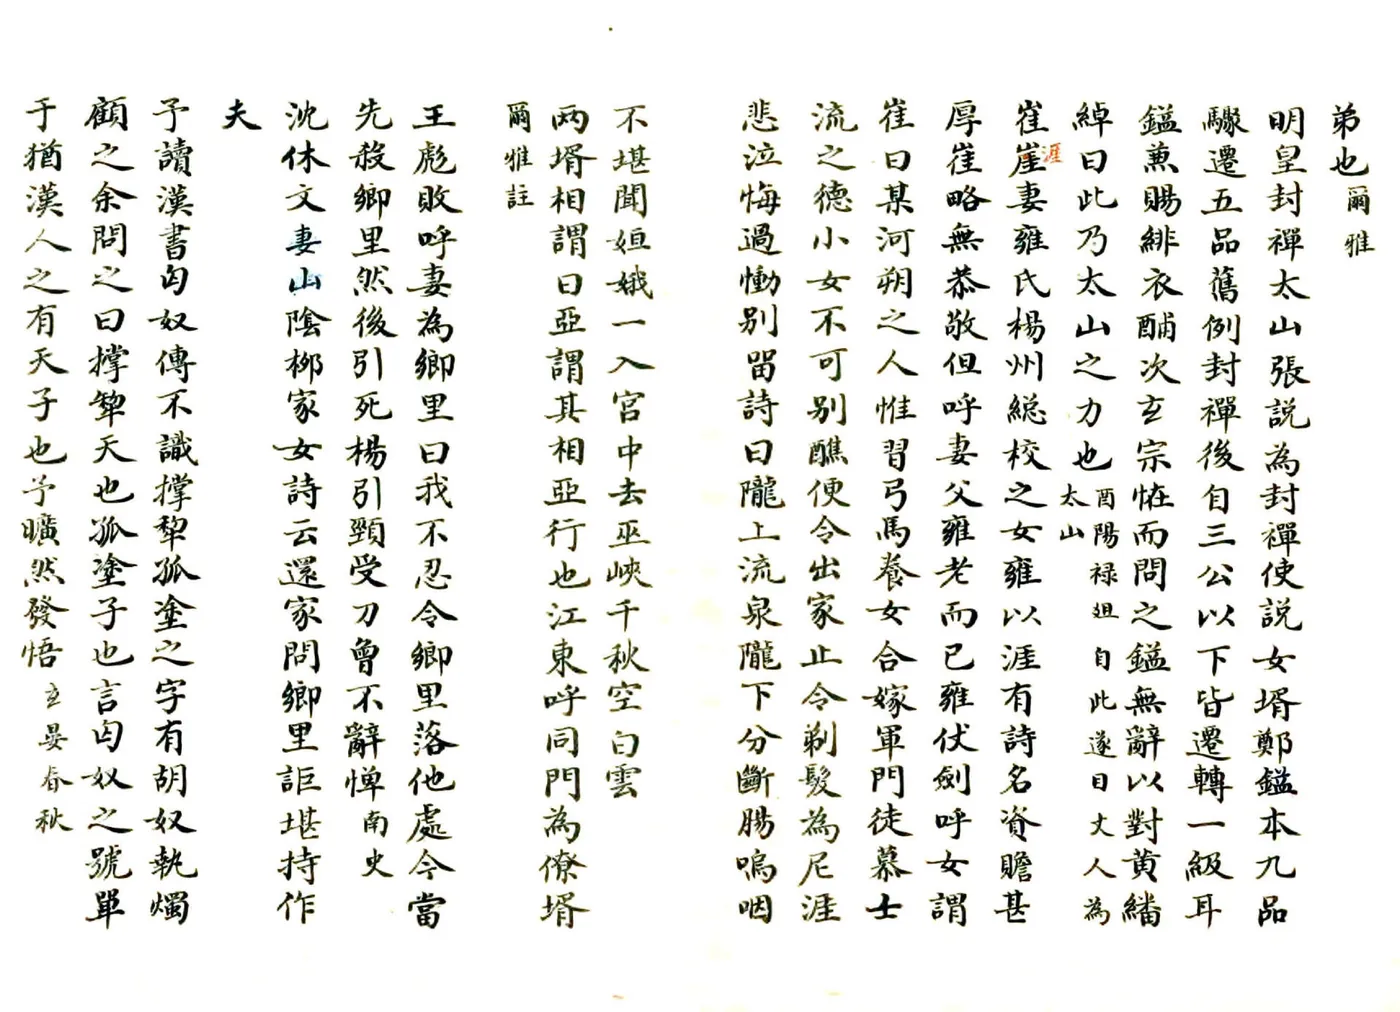 弟也爾雅
明皇封禪太山張説為封禪使説女壻鄭鎰本九品
驟遷五品舊例封禪後自三公以下皆遷轉一級耳
鎰兼賜緋衣酺次玄宗怪而問之鎰無辭以對黄繙
綽曰此乃太山之力也酉陽禄俎自此遂目丈人為
太山
崔崖妻雍氏楊州総校之女雍以涯有詩名資贍甚
涯
厚崔略無恭敬但呼妻父雍老而已雍伏劍呼女謂
崔曰某河朔之人惟習弓馬養女合嫁軍門徒慕士
流之德小女不可别醮便令出家止令剃髮為尼涯
悲泣悔過慟别留詩曰隴上流泉隴下分斷腸嗚咽
不堪聞姮娥一入宫中去巫峽千秋空白雲
兩壻相謂曰亞謂其相亞行也江東呼同門為僚壻
爾雅註
王彪敗呼妻為鄉里曰我不忍令鄉里落他處今當
先殺鄉里然後引死楊引頸受刀曾不辭憚南史
沈休文妻山陰柳家女詩云還家問鄉里詎堪持作
夫
予讀漢書匈奴傳不識撑犂孤塗之字有胡奴執燭
顧之余問之曰撑犂天也孤塗子也言匈奴之號單
于猶漢人之有天子也予曠然發悟玄晏春秋